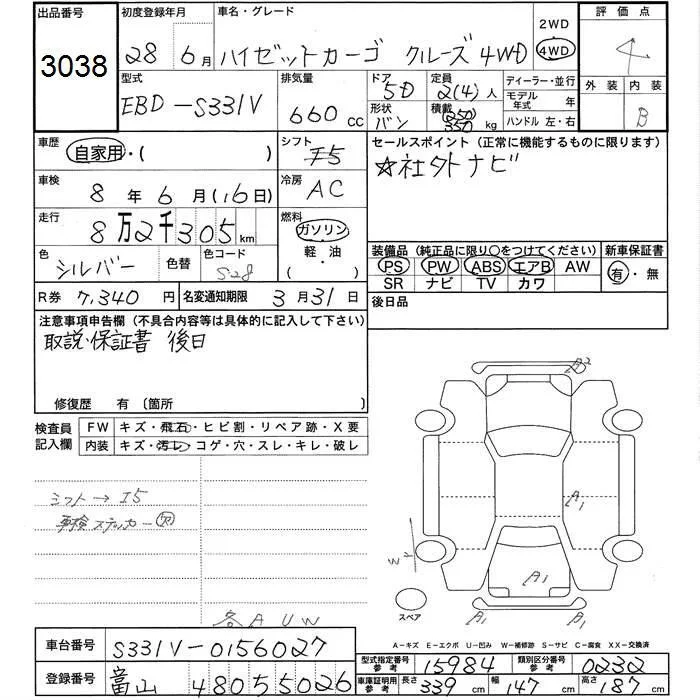 出品番号 3038
初度登録年月 28年 6月
車名・グレード ハイゼットカーゴ クルーズ 4WD
2WD
4WD
評価点 4
外装 内装 B
型式 EBD-S331V
排気量 660 cc
ドア 5D
形状 バン
定員 2(4)人
積載 (250) 350 kg
ディーラー・並行
モデル年式 年
ハンドル 左・右
車歴 自家用・( )
シフト I5
セールスポイント (正常に機能するものに限ります)
☆社外ナビ
車検 8年 6月(16日)
冷房 AC
走行 8万2千305 km
燃料 ガソリン
軽・油
( )
色 シルバー
色替
色コード S28
装備品 (純正品に限り○をつけてください)
PS PW ABS エアB AW
SR ナビ TV カワ
新車保証書
有・無
R券 7,340円
名変通知期限 3月31日
後日品
注意事項申告欄 (不具合内容等は具体的に記入して下さい)
取説・保証書 後日
修復歴 有 〔箇所
検査員記入欄
FW キズ・飛石・ヒビ割・リペア跡・X要
内装 キズ・汚レ・コゲ・穴・スレ・キレ・破レ
シフト→I5
車検ステッカー欠
各AUW
A2
A1
A1
W2
B1
B1
スペア
A-キズ E-エクボ U-凹み W-補修跡 S-サビ C-腐食 XX-交換済
車台番号 S331V-0156027
登録番号 富山 480 う 5026
型式指定番号 参考 15984
類別区分番号 参考 0232
車庫証明用 参考 長さ 339 cm 幅 147 cm 高さ 187 cm